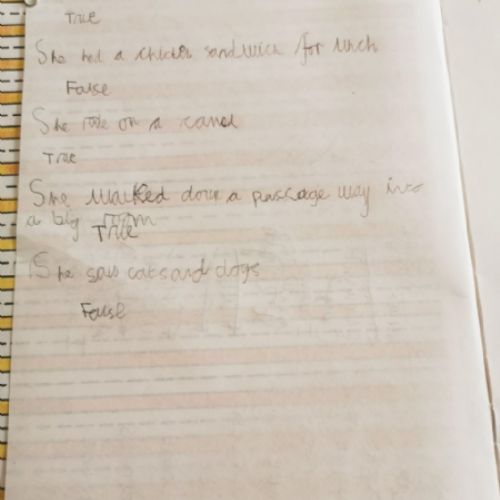 True
She had a chicken sandwich for lunch
False
She rode on a camel
True
She walked down a passage way into
a big room
True
She saw cats and dogs
False